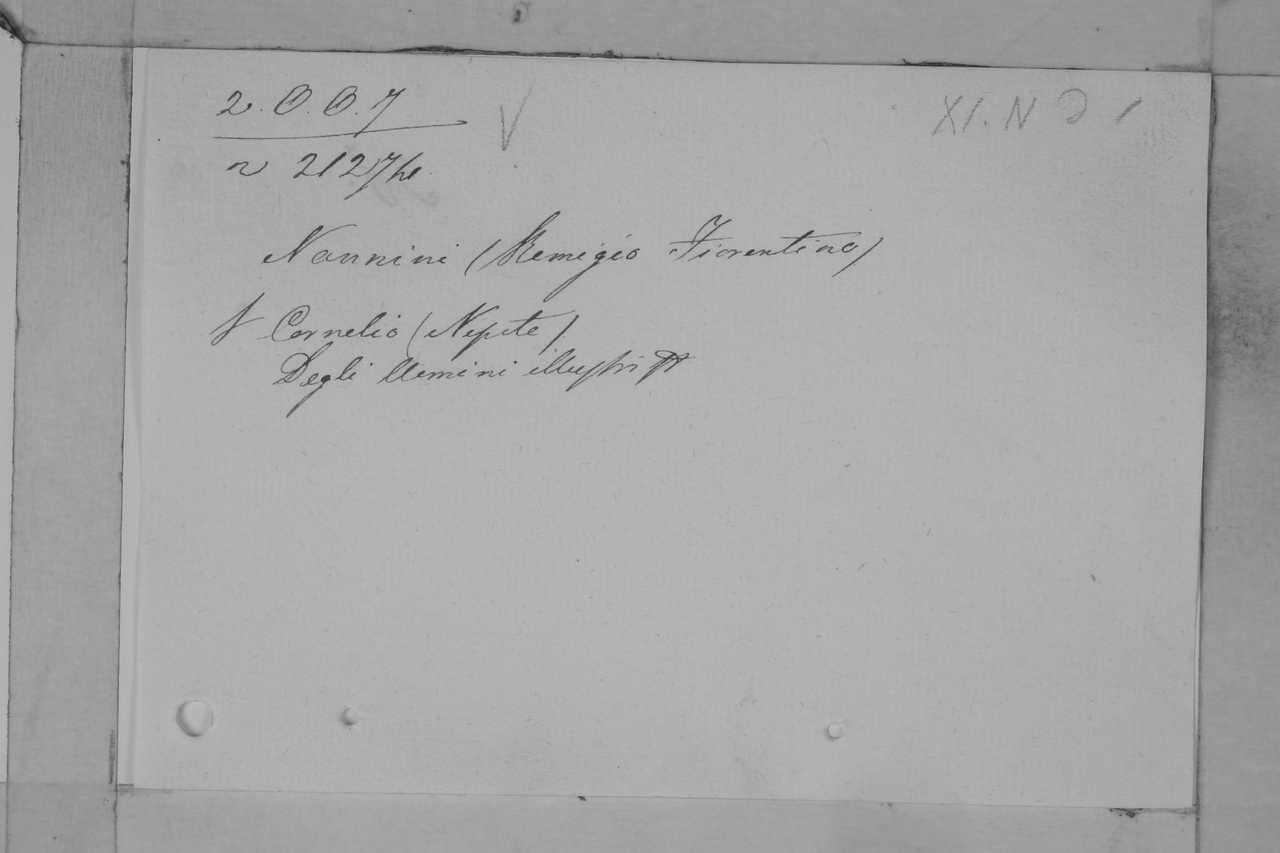 2. O. O. 7
V
n 2127 bi
Nannini (Remigio Fiorentino)
V Cornelio (Nipote)
Degli Uomini illustri